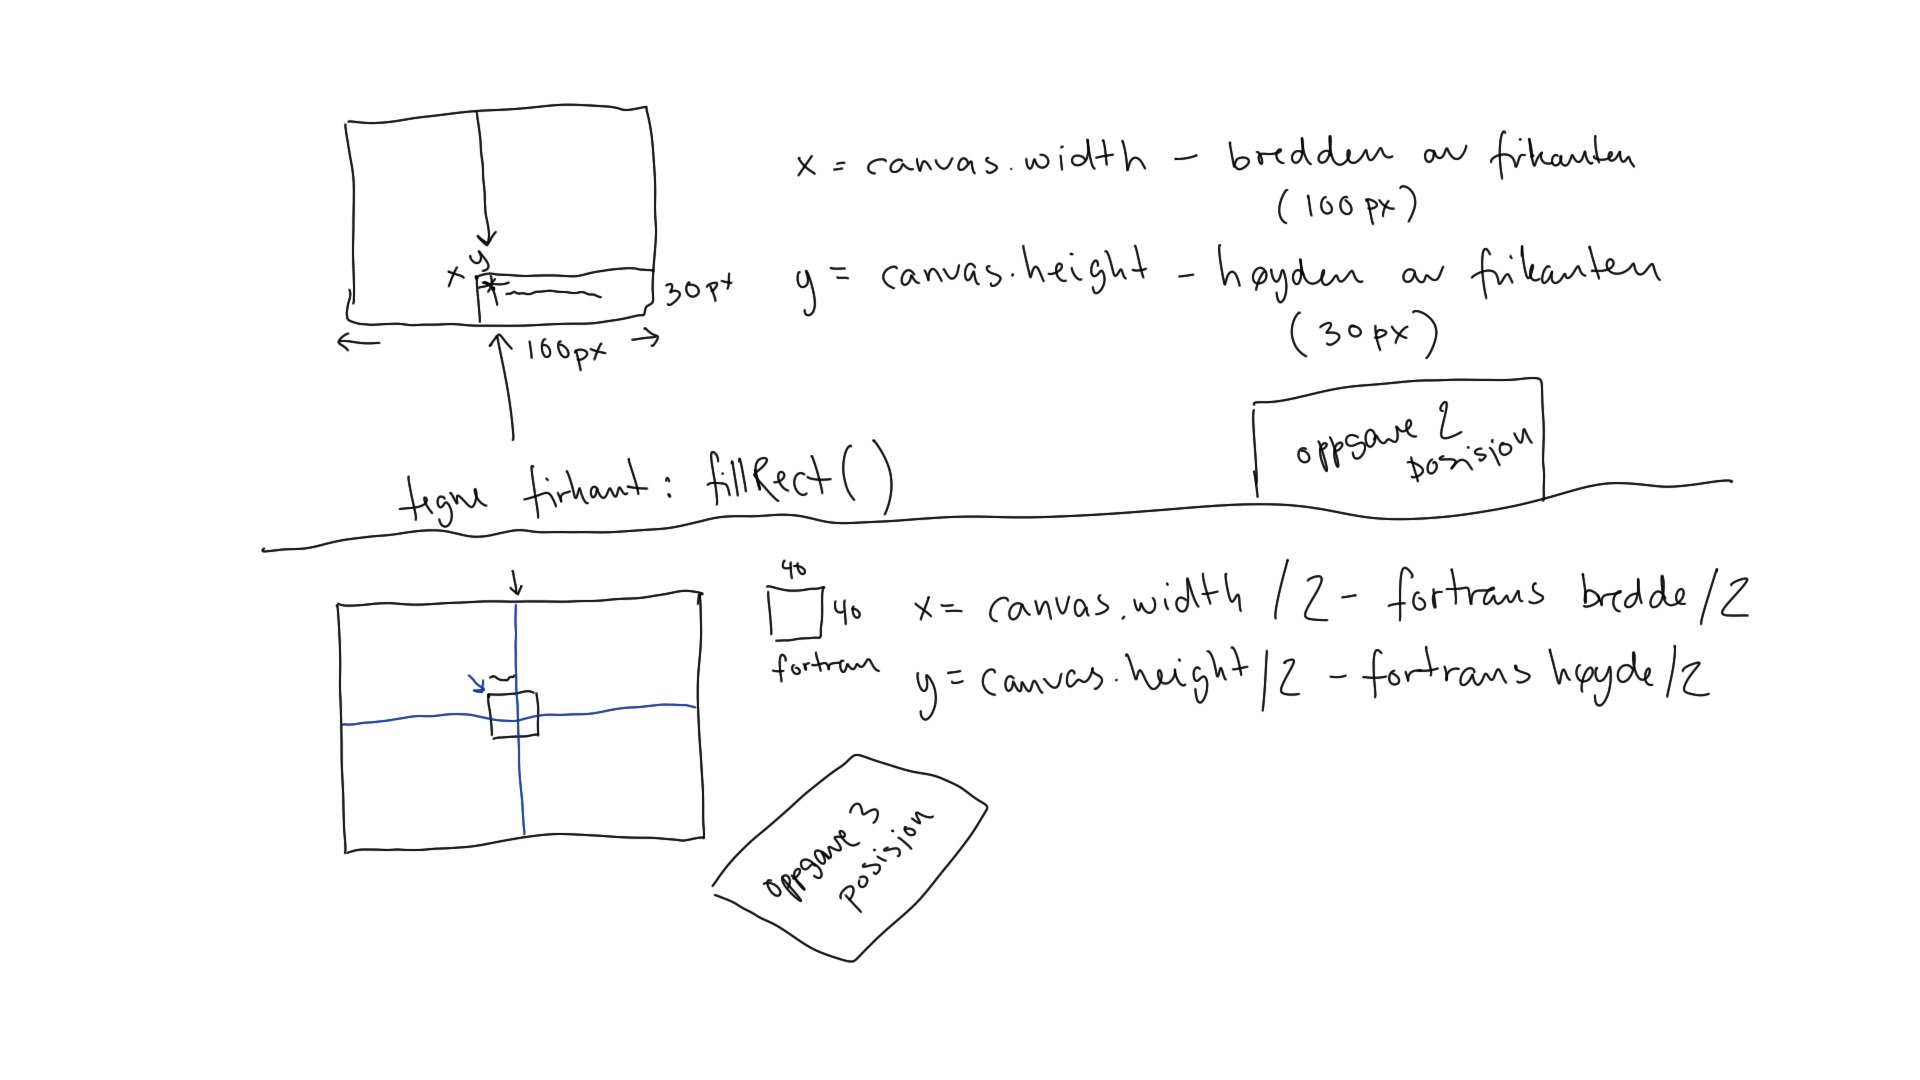 x = canvas.width - bredden av firkanten
(100px)
y = canvas.height - høyden av firkanten
(30px)
x y
30px
100px
oppgave 2
posisjon
tegne firkant: fillRect()
40
40
fortran
x = canvas.width /2 - fortrans bredde/2
y = canvas.height/2 - fortrans høyde/2
oppgave 3
posisjon